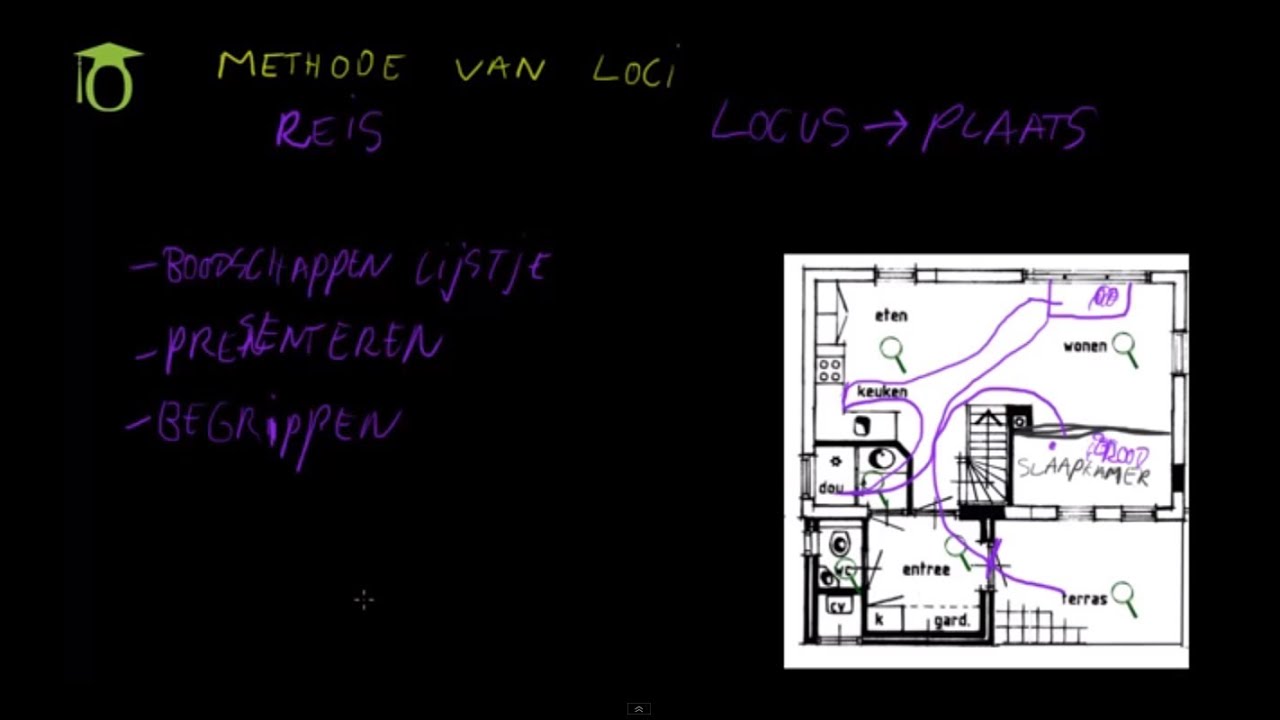 METHODE VAN LOCI
REIS
LOCUS → PLAATS
- BOODSCHAPPEN LIJSTJE
- PRESENTEREN
- BEGRIPPEN
eten
wonen
keuken
BROOD
SLAAPKAMER
dou
wc
entree
terras
cv
k
gard.